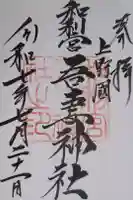 奉拝
上野國
和利宮吾妻神社
令和七年七月二十一日